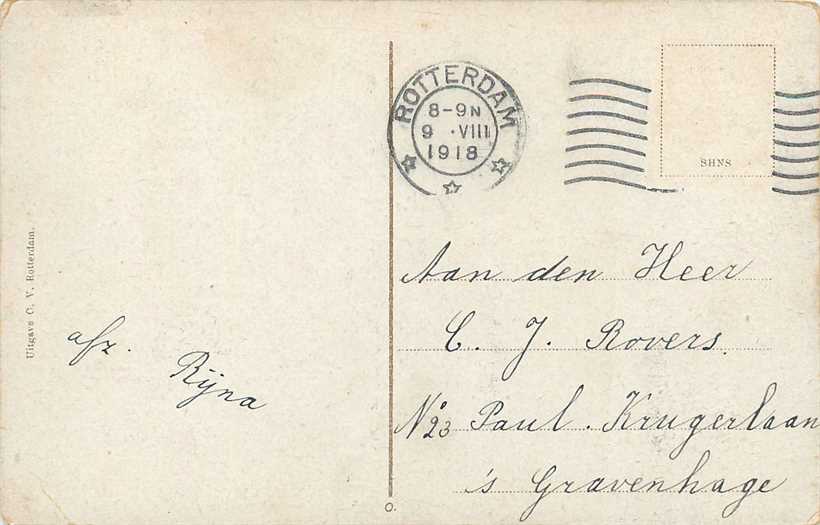 ROTTERDAM
8-9N
9 ·VIII
1918
SHNS
Uitgave C. V. Rotterdam.
afz. Rijna
Aan den Heer
C. J. Rovers.
No 23 Paul. Krugerlaan
's Gravenhage
O.